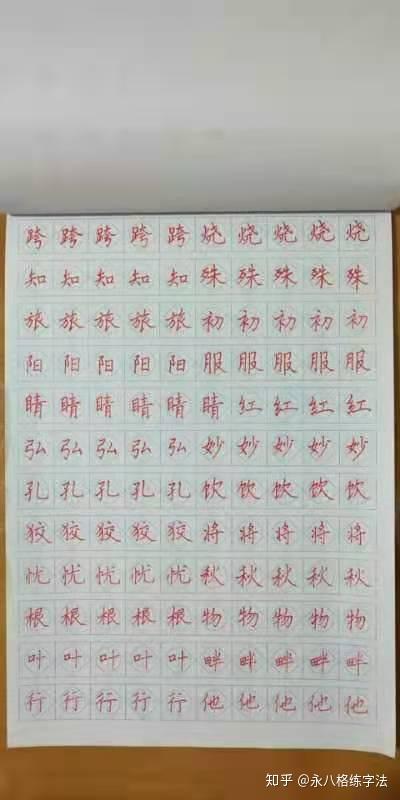 跨跨跨跨跨烧烧烧烧烧
知知知知知殊殊殊殊殊
旅旅旅旅旅初初初初初
阳阳阳阳阳服服服服服
睛睛睛睛睛睛红红红红
弘弘弘弘弘妙妙妙妙妙
孔孔孔孔孔饮饮饮饮饮
狡狡狡狡狡将将将将将
忧忧忧忧忧秋秋秋秋秋
根根根根根物物物物物
叶叶叶叶叶畔畔畔畔畔
行行行行行他他他他他
知乎 @永八格练字法